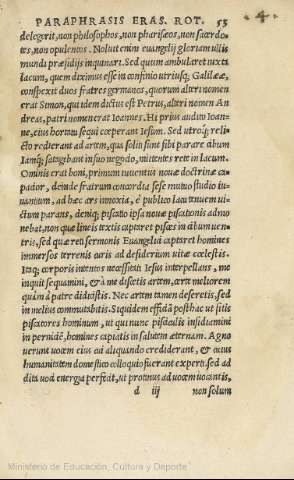 PARAPHRASIS ERAS. ROT. 55
·4·
delegerit, non philosophos, non phariseos, non sacerdo-
tes, non opulentos. Noluit enim euangelij gloriam ullis
mundi præsidijs inquinari. Sed quum ambularet iuxta
lacum, quem diximus esse in confinio utriusq; Galilææ,
conspexit duos fratres germanos, quorum alteri nomen
erat Simon, qui idem dictus est Petrus, alteri nomen An
dreas, patri nomen erat Ioannes. Hi prius audito Ioan-
ne, eius hortatu sequi cœperant Iesum. Sed utroq; reli-
cto redierant ad artem, qua soliti sint sibi parare uictum
Iamq; satagebant in suo negocio, mittentes rete in lacum.
Ominis erat boni, primum iuuentus nouæ doctrinæ ca-
pador, deinde fratrum concordia sese mutuo studio iu-
uantium, ad hæc ars innoxia, è publico lacu tenuem ui-
ctum parans, deniq; piscatio ipsa nouæ piscationis admo
nebat, non quæ lineis textis captaret pisces in cibum uen-
tris, sed quæ reti sermonis Euangelici captaret homines
immersos terrenis curis ad desiderium uitæ cœlestis.
Itaq; corporis intentos necessitati Iesus interpellans, me
inquit sequamini, & à me discetis artem, arte meliorem
quàm à patre didicistis. Nec artem tamen deseretis, sed
in melius commutabitis. Siquidem efficiam posthac ut sitis
piscatores hominum, ut qui nunc pisciculis insidiamini
in perniciem, homines capiatis in salutem æternam. Agno
uerunt uocem eius cui aliquando crediderant, & cuius
humanitatem domestico colloquio fuerant experti. sed ad
dita uoci energia perfecit, ut protinus ad uocem uocantis,
d iij non solum
Ministerio de Educación, Cultura y Deporte